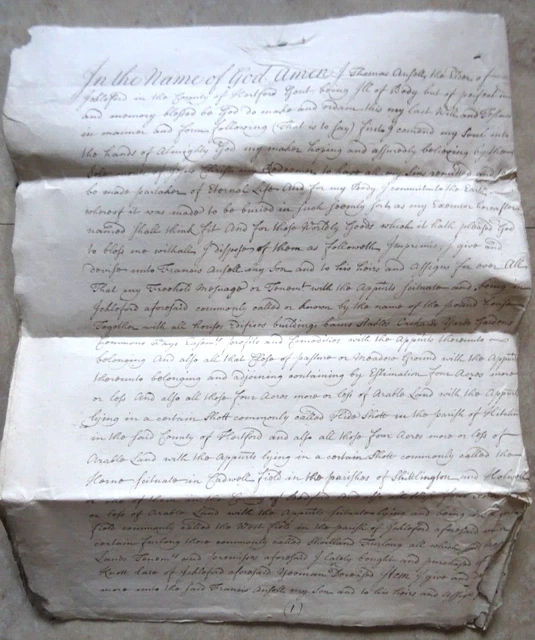 In the Name of God Amen I Thomas Ansell the Elder of
Ickleford in the County of Hertford Gent being Ill of Body but of perfect mind
and memory blessed be God do make and ordain this my last Will and Testamt
in manner and forme following (That is to say) First I comend my Soul into
the hands of Almighty God my maker hoping and assuredly believing by the
to have my Sins remitted and to
be made partaker of Eternal Life And for my Body I commit to the Earth
whereof it was made to be buried in such decently sort as my Executor hereafter
named shall think fit And for those Worldly Goods which it hath pleased God
to bless me withall I dispose of them as followeth Imprimis I give and
devise unto Francis Ansell my Son and to his heirs and Assigns for ever All
That my Freehold Message or Tenemt with the Appurts scituate and being in
Ickleford aforesaid commonly called or known by the name of the pound house
Together with all houses Edifices buildings barns Stables Yards Gardens
Commons Ways Easmts profits and Comodities with the Appurts thereunto
belonging And also all that Close of pasture or Meadow Ground with the Appurts
thereunto belonging and adjoining containing by Estimation Four Acres more
or less And also all those Four Acres more or less of Arable Land with the Appurts
lying in a certain Shott commonly called Hide Shott in the parish of Hitchin
in the said County of Hertford and also all those Four Acres more or less of
Arable Land with the Appurts lying in a certain Shott commonly called the
Horne scituate in Cadwell Field in the parishes of Shittlington and Holwell
or less of Arable Land with the Appurts scituate lying and being
Field commonly called the West Field in the parish of Ickleford aforesaid in a
certain furlong there commonly called Furlong all which
Lands Tenemts and premises aforesaid I lately bought and purchased of
late of Ickleford aforesaid Yeoman Deceased Item I give and
more unto the said Francis Ansell my Son and to his heirs and Assigns
(1)